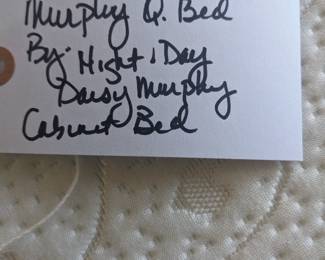 Murphy Q. Bed
By: Night & Day
Daisy Murphy
Cabinet Bed